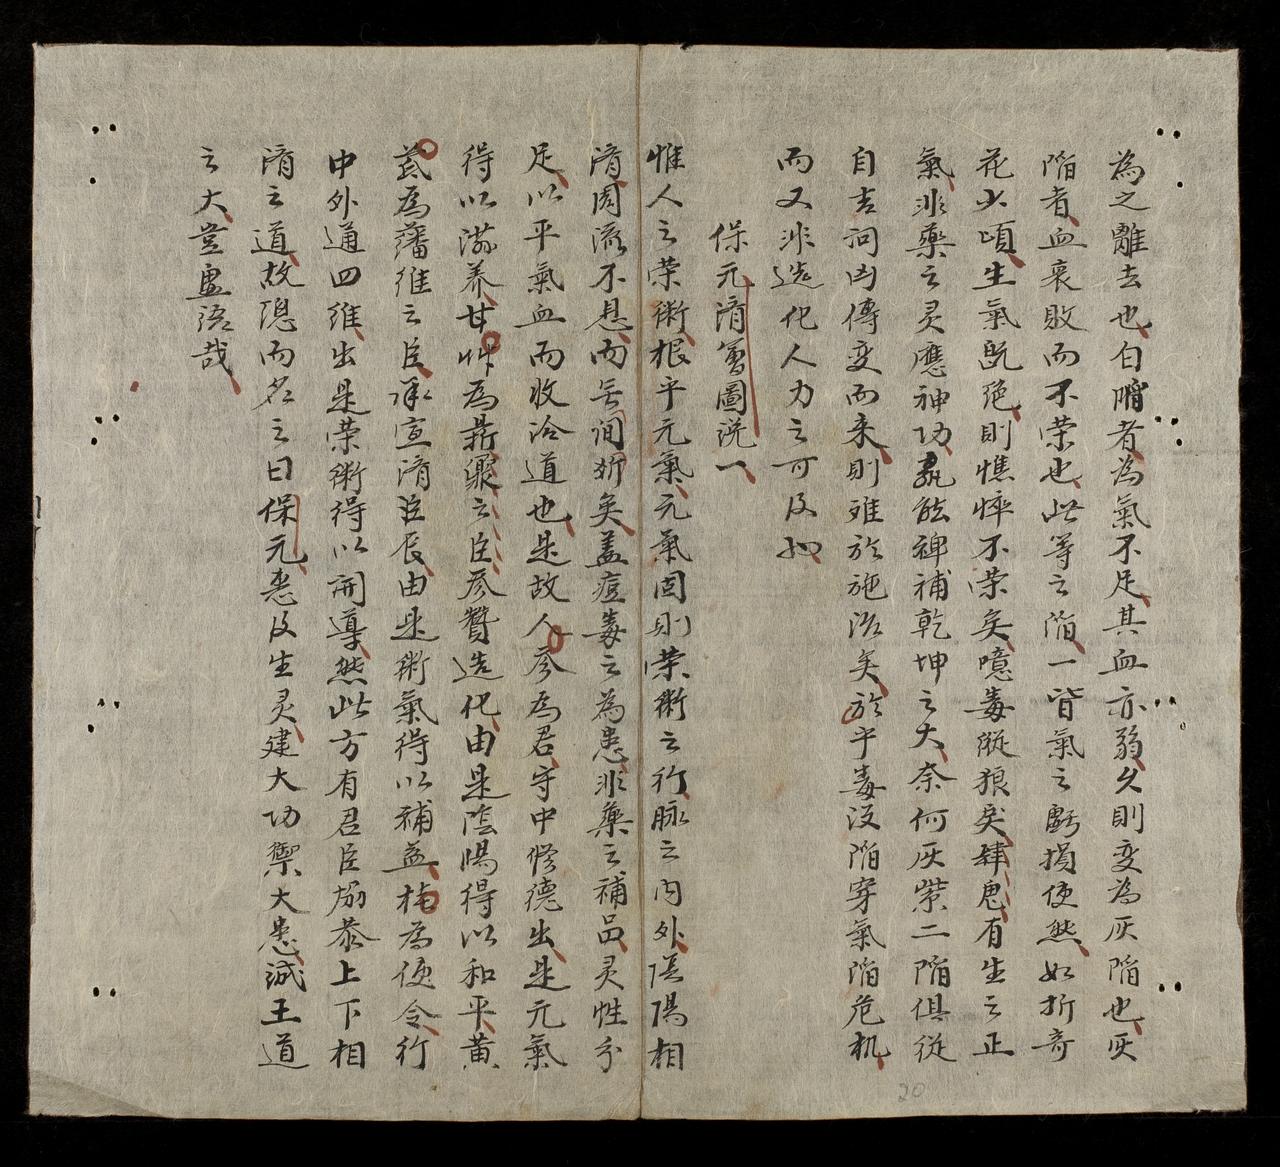 為之離去也白陷者為氣不足其血亦弱久則变為灰陷也灰
陷者血衰敗而不荣也此等之陷一皆氣之虧損使然如折奇
花少頃生氣既绝則憔悴不荣矣噫毒縱狼矣肆鬼有生之正
氣非藥之灵應神功孰能裨補乾坤之大奈何灰紫二陷俱従
自吉词凶傳变而来則难於施治矣於乎毒没陷穿氣陷危机
而又非造化人力之可及
保元湇會圖説一
惟人之荣衛根乎元氣元氣固則荣衛之行脉之内外陰陽相
湇周流不息而无间断矣盖痘毒之為患非藥之補品灵性分
足以平氣血而收治道也是故人参為君守中修德出是元氣
得以滋养甘艸為鼎鼐之臣参贊造化由是陰陽得以和平黄
芪為藩维之臣承宣湇臣辰由是衛氣得以補益桂為使令行
中外通四维出是荣衛得以開導然此方有君臣協恭上下相
湇之道故總而名之曰保元恵及生灵建大功禦大患誠王道
之大豈虚語哉